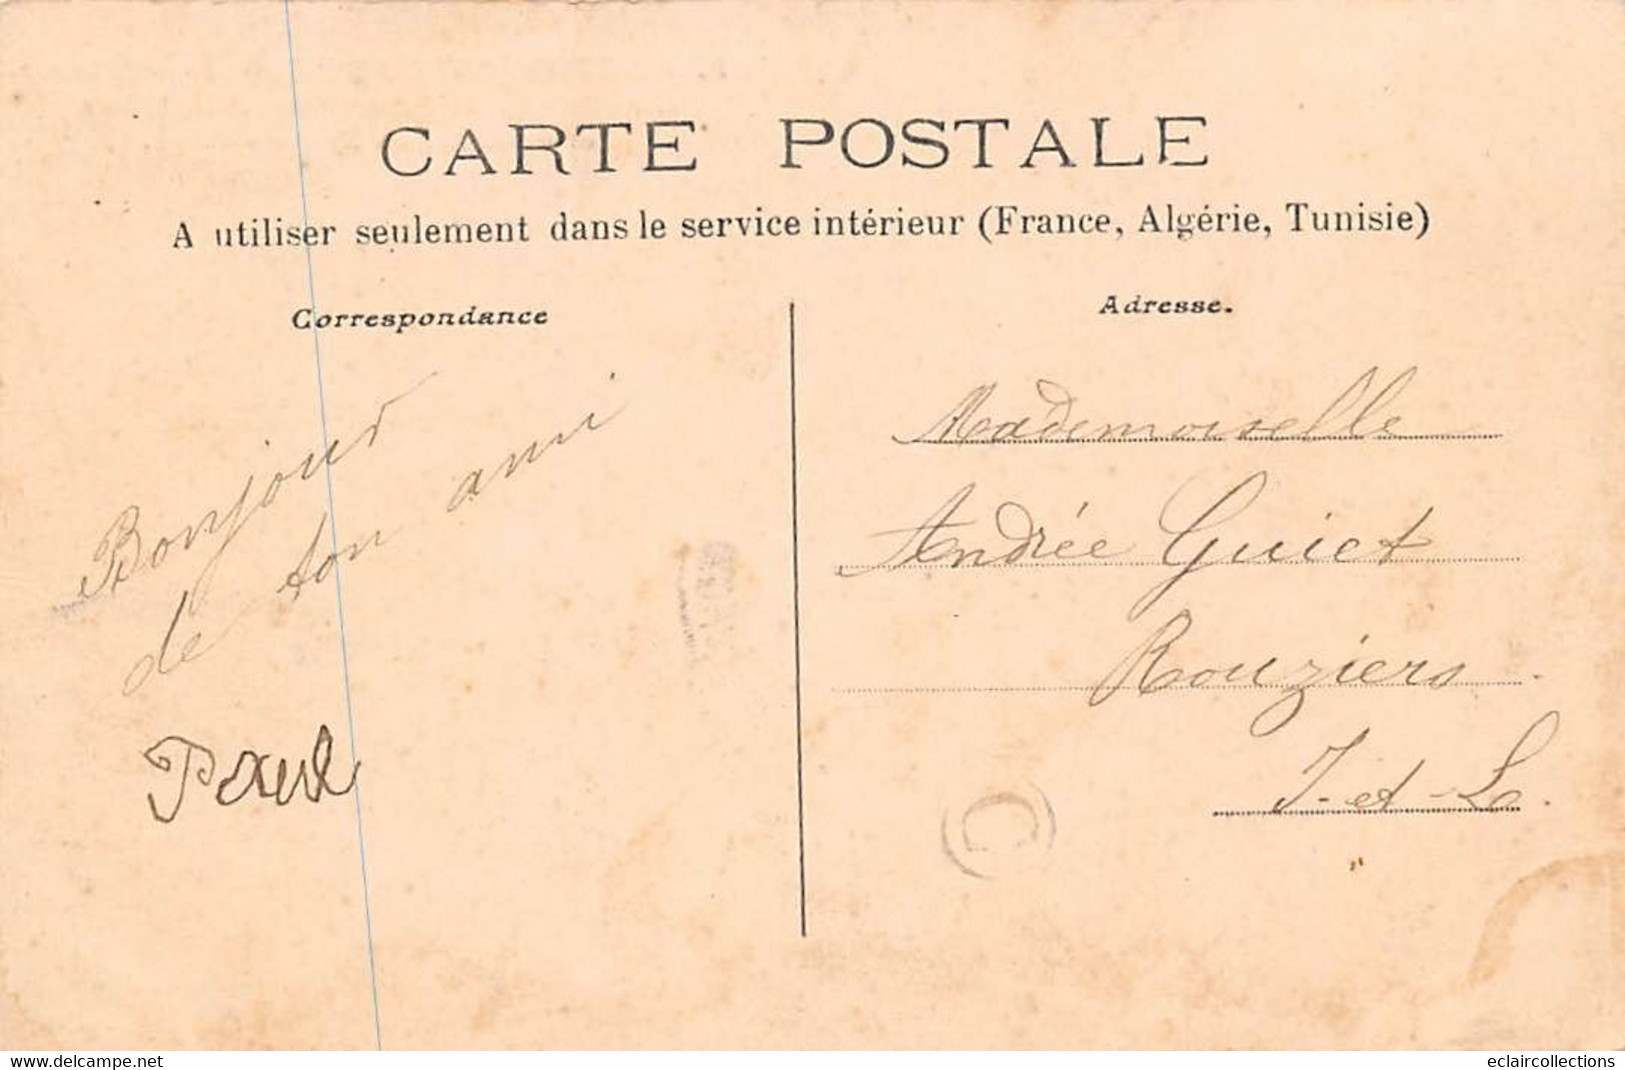 CARTE POSTALE
A utiliser seulement dans le service intérieur (France, Algérie, Tunisie)
Correspondance
Bonjour
de ton ami
Paul
Adresse.
Mademoiselle
Andrée Guiet
Rouziers
I-et-L.
C
www.delcampe.net
eclaircollections